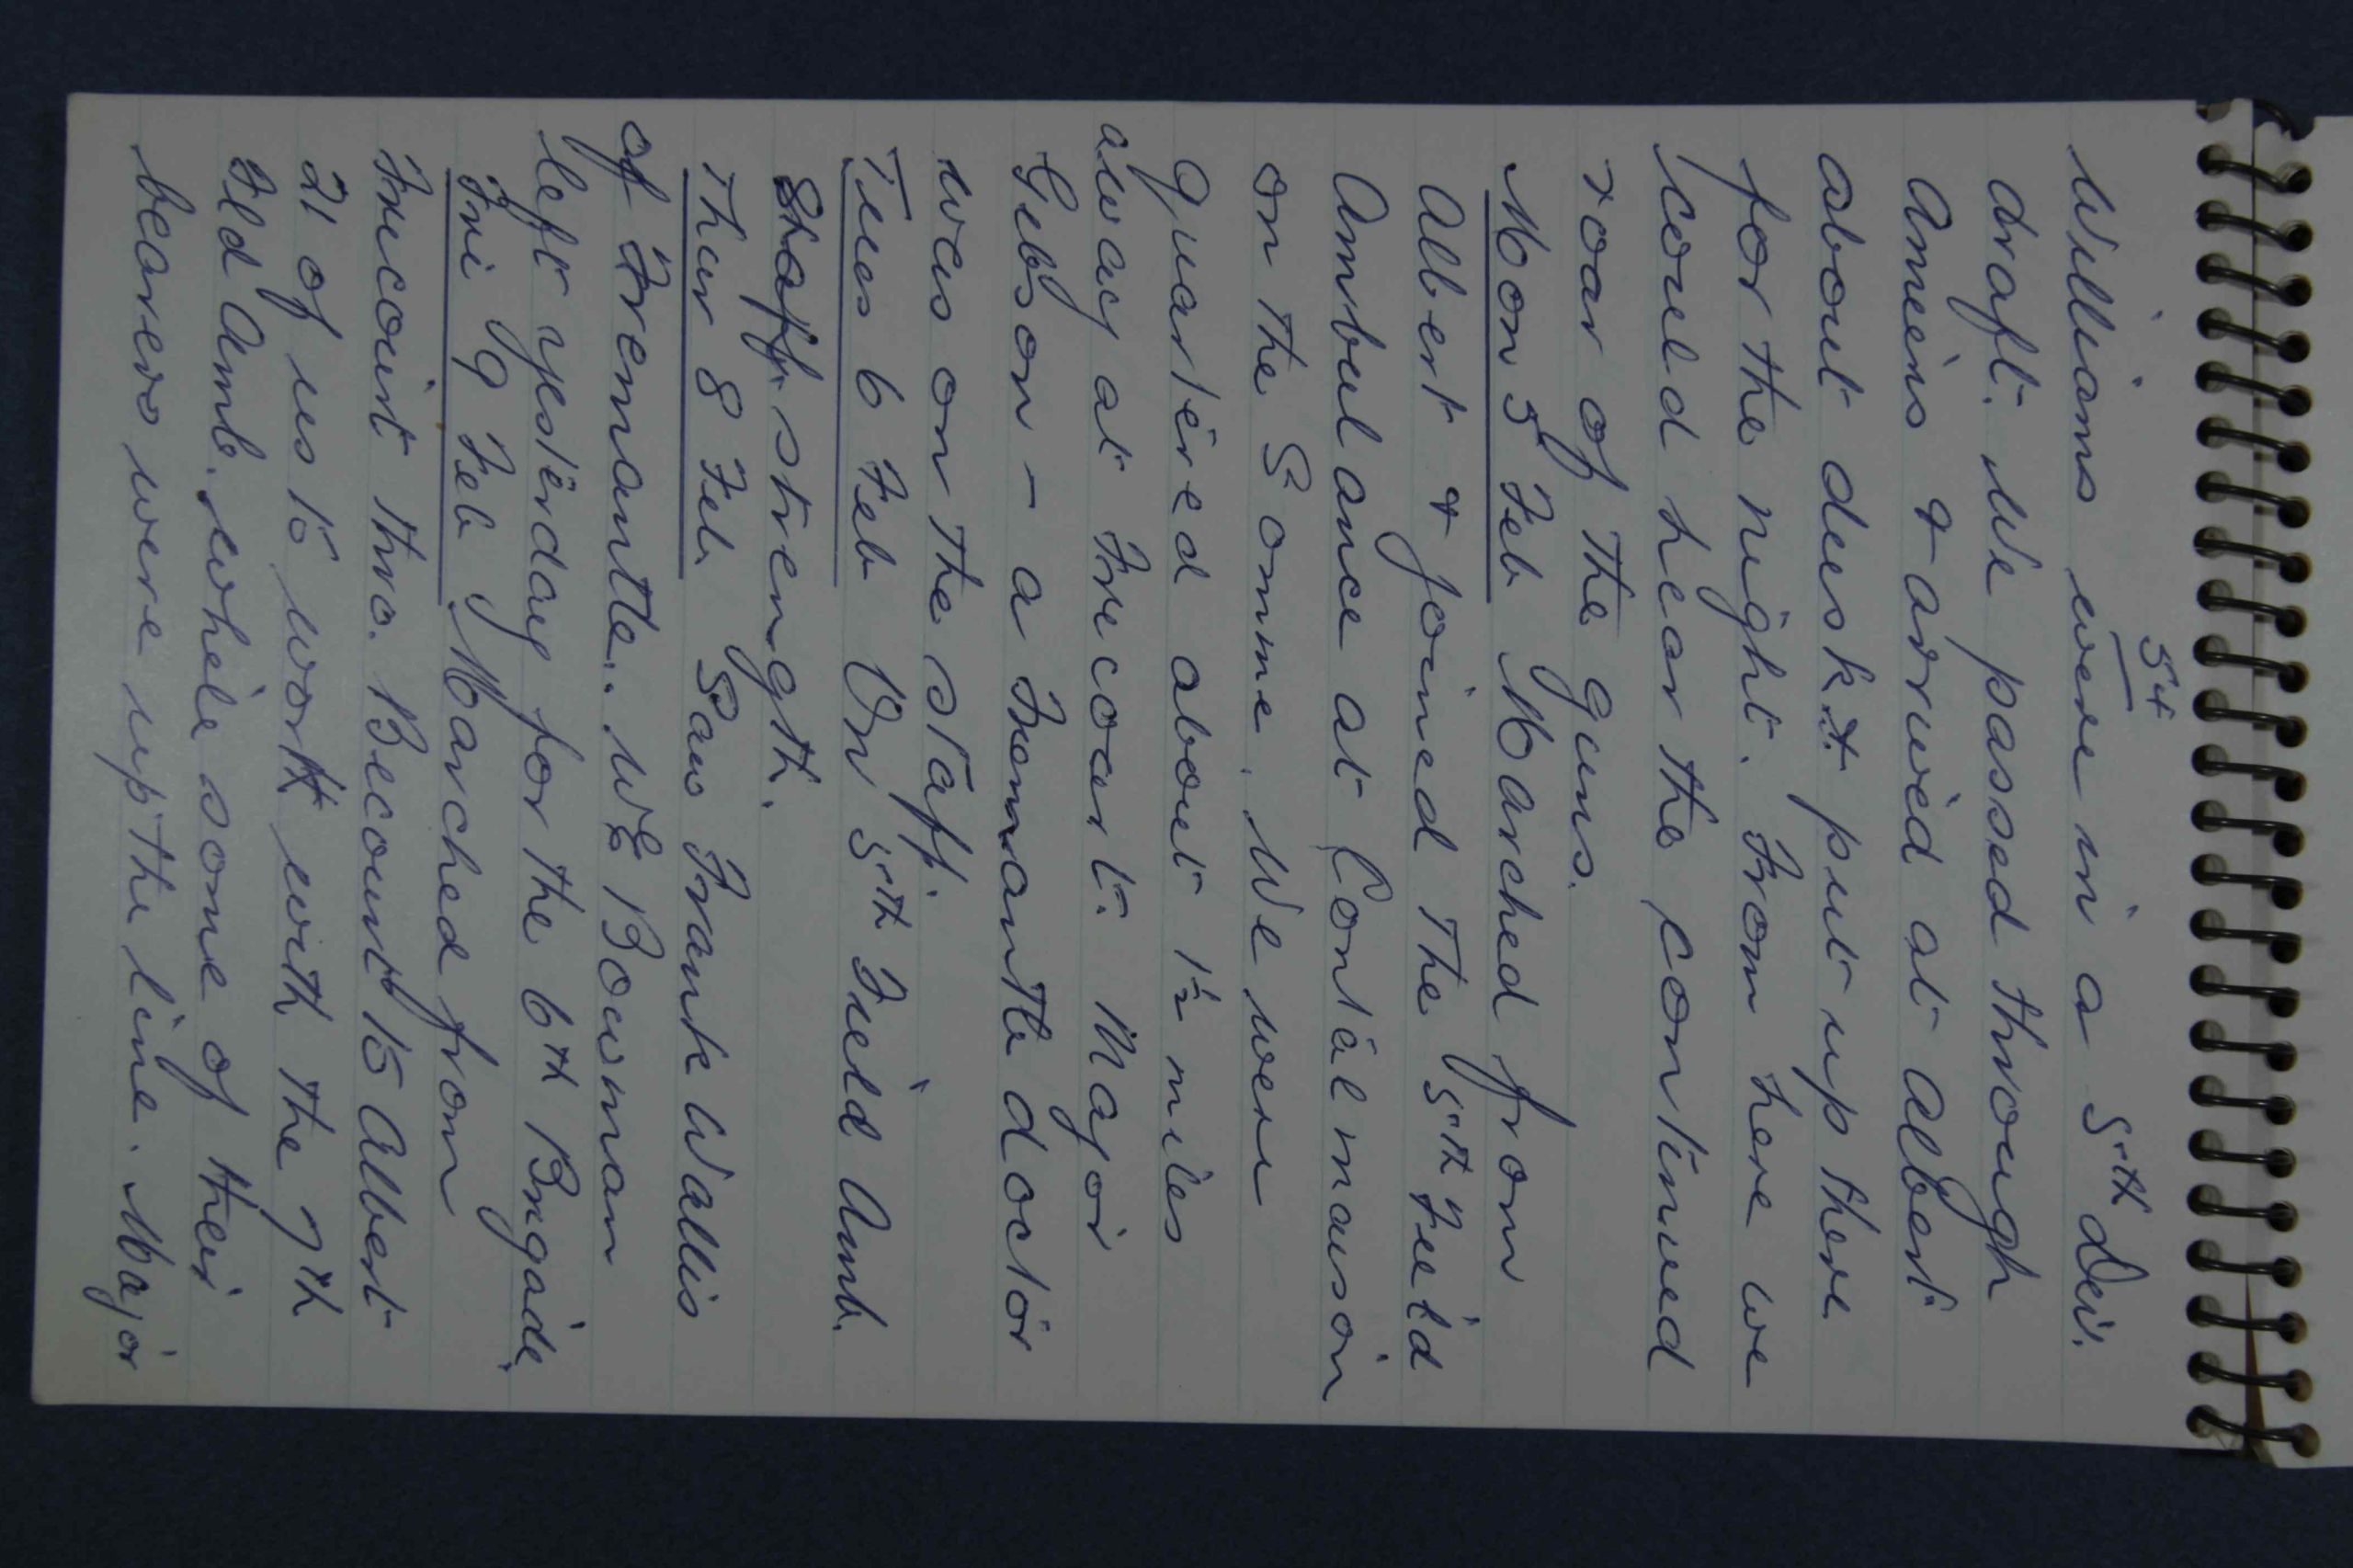 54
Williams were in a 5th Div.
draft. We passed through
Amiens & arrived at Albert
about dusk & put up there
for the night. From here we
could hear the continued
roar of the guns.
Mon 5 Feb Marched from
Albert & joined the 5th Field
Ambulance at Contalmaison
on the Somme. We were
quartered about 1½ miles
away at Fricourt. Major
Gibson - a Fremantle doctor
was on the staff.
Tues 6 Feb On 5th Field Amb.
Staff strength.
Thur 8 Feb. Saw Frank Wallis
of Fremantle. WE Bowman
left yesterday for the 6th Brigade.
Fri 9 Feb Marched from
Fricourt thro. Becourt to Albert
21 of us to work with the 7th
Fld Amb. while some of their
bearers were up the line. Major